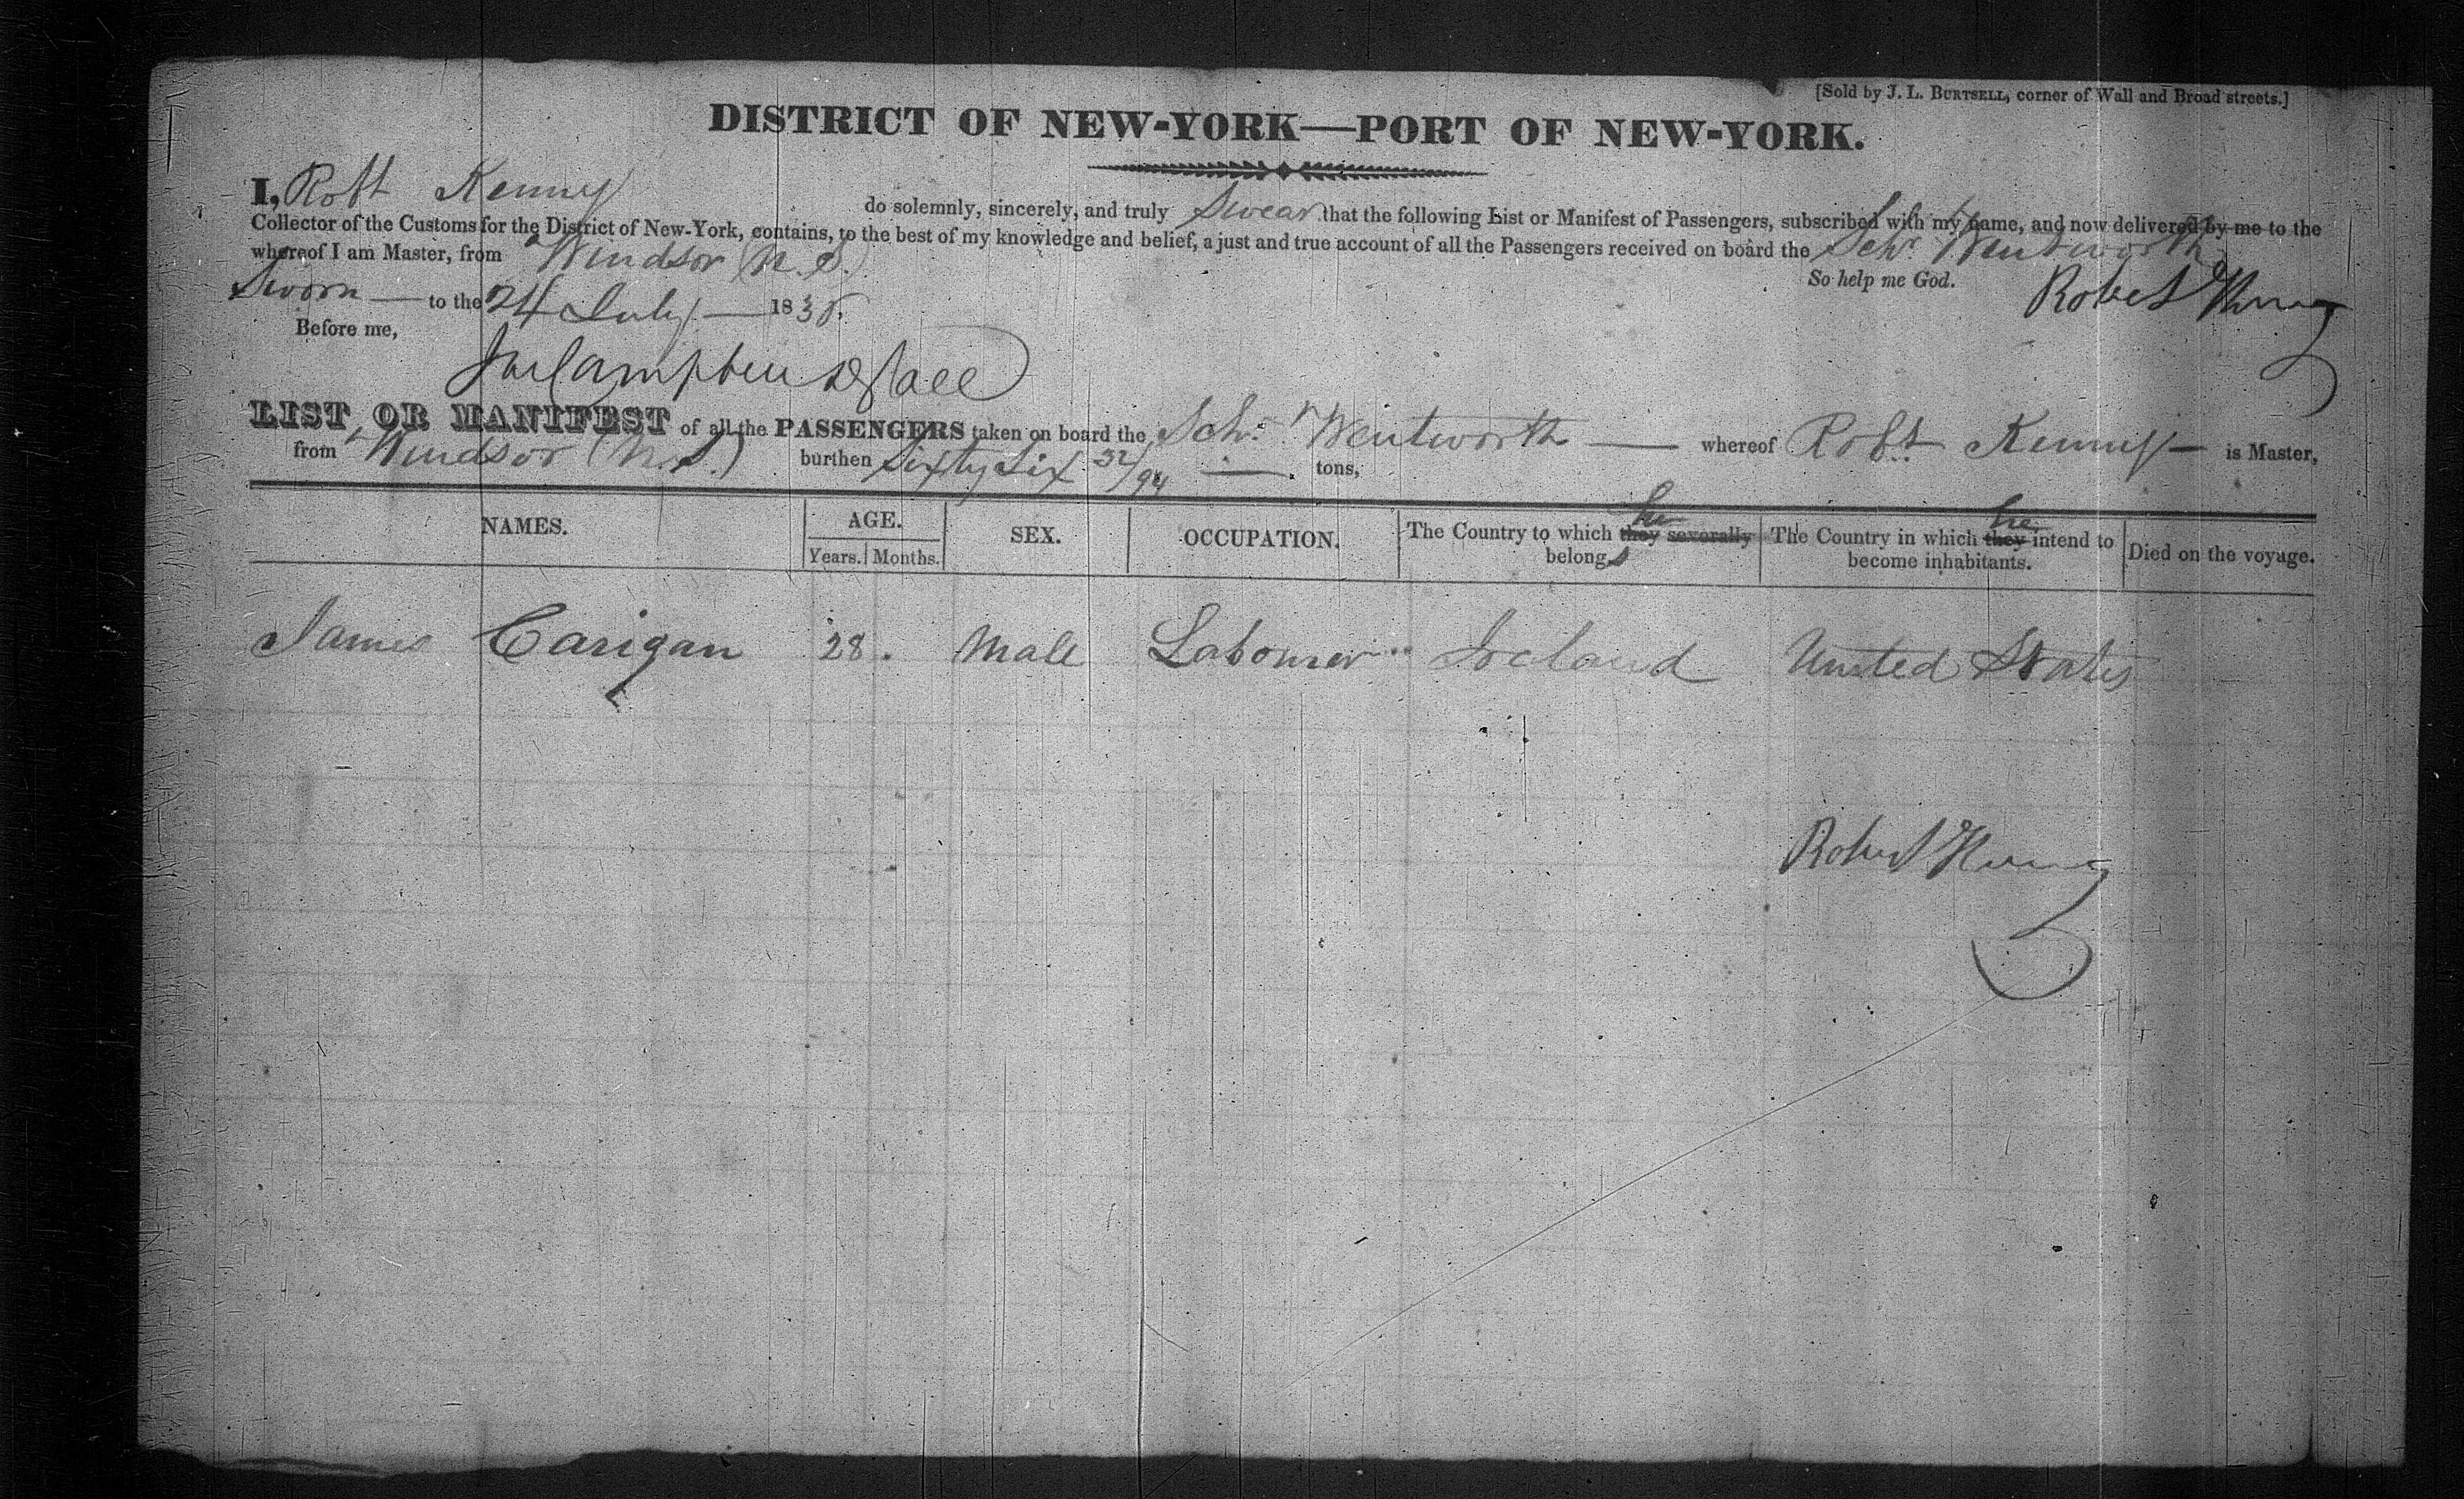 [Sold by J. L. BURTSELL, corner of Wall and Broad streets.]
DISTRICT OF NEW-YORK—PORT OF NEW-YORK.
I, Robt Kenny do solemnly, sincerely, and truly Swear that the following List or Manifest of Passengers, subscribed with my name, and now delivered by me to the
Collector of the Customs for the District of New-York, contains, to the best of my knowledge and belief, a just and true account of all the Passengers received on board the Schr Wentworth
whereof I am Master, from Windsor (N.S.)
So help me God.
Sworn — to the 24 July — 18
Robert
Before me,
LIST OR MANIFEST of all the PASSENGERS taken on board the Schr Wentworth — whereof Robt Kenny — is Master,
from Windsor (N.S.) burthen Sixty Six 32/94 — tons,
NAMES. AGE. SEX. OCCUPATION. The Country to which they severally he belongs The Country in which they he intend to become inhabitants. Died on the voyage.
Years. Months.
James Carigan 28. Male Labourer Ireland United States
Robert